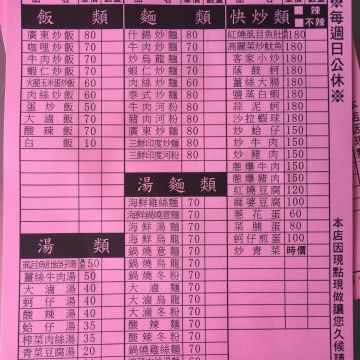 飯類
廣東炒飯 80
咖哩炒飯 70
牛肉炒飯 70
蝦仁炒飯 70
火腿玉米蛋炒飯 60
肉絲炒飯 60
蛋炒飯 50
大滷飯 70
酸辣飯 70
白飯 10
湯類
虱目魚肚蛤仔湯 50
薑絲牛肉湯 50
大滷湯 40
蚵仔湯 40
酸辣湯 40
蛤仔湯 35
榨菜肉絲湯 35
青菜豆腐湯 20
麵類
什錦炒麵 80
牛肉炒麵 70
炒烏龍麵 70
蝦仁炒麵 70
肉絲炒麵 60
泰式炒麵 80
牛肉河粉 80
豬肉河粉 80
廣東炒麵 80
三鮮印度炒麵 80
三鮮印度河粉 80
湯麵類
海鮮雞絲麵 70
海鮮鍋燒意麵 70
海鮮湯麵 70
海鮮烏龍 70
鍋燒意麵 70
鍋燒烏龍 70
鍋燒冬粉 70
大滷麵 70
大滷烏龍 70
大滷冬粉 70
酸辣麵 70
鍋燒雞絲麵 60
快炒類
辣
不辣
紅燒虱目魚肚 180
高麗菜炒魷魚 180
客家小炒 180
蔭豉蚵 180
薑絲大腸 180
鹽蒸白蝦 180
蒜泥蚵 180
沙拉蝦球 180
炒蛤仔 150
炒牛肉 150
炒豬肉 150
蔥爆牛肉 150
蔥爆豬肉 150
紅燒豆腐 120
麻婆豆腐 100
蔥花蛋 60
菜脯蛋 80
蚵仔煎蛋 100
炒青菜 時價
※每週日公休※
本店因現點現做讓您久候請